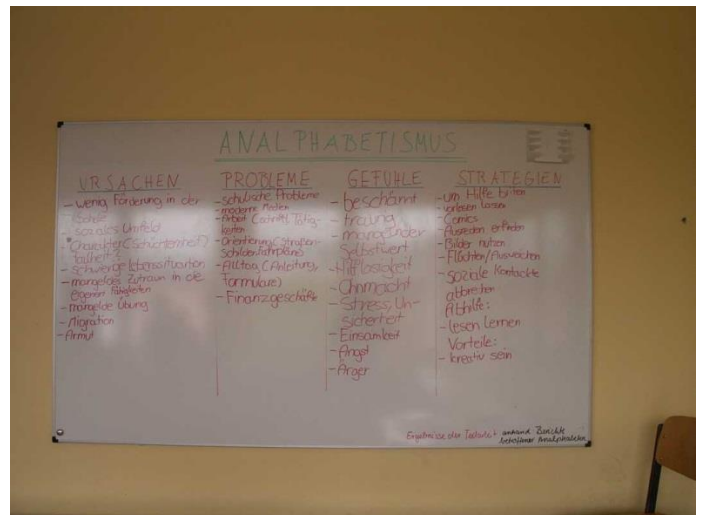 ANALPHABETISMUS
URSACHEN
- wenig Förderung in der
Schule
- soziales Umfeld
- Charakter (Schüchternheit,
Faulheit?)
- schwierige Lebenssituation
- mangeldes Zutraun in die
eigenen Fähigkeiten
- mangelde Übung
- Migration
- Armut
PROBLEME
- schulische Probleme
- moderne Medien
- Arbeit (schriftl. Tätig-
keiten
- Orientierung (Straßen-
schilder, Fahrpläne)
- Alltag, (Anleitung,
Formulare)
- Finanzgeschäfte
GEFÜHLE
- beschämt
- traurig
- mangelnder
Selbstwert
- Hilflosigkeit
- Ohnmacht
- Stress, Un-
sicherheit
- Einsamkeit
- Angst
- Ärger
STRATEGIEN
- um Hilfe bitten
- vorlesen lassen
- Comics
- Ausreden erfinden
- Bilder nutzen
- Flüchten/Ausweichen
- soziale Kontakte
abbrechen
Abhilfe:
- lesen lernen
Vorteile:
- kreativ sein
Ergebnisse der anhand Berichte
betroffener Analphabeten